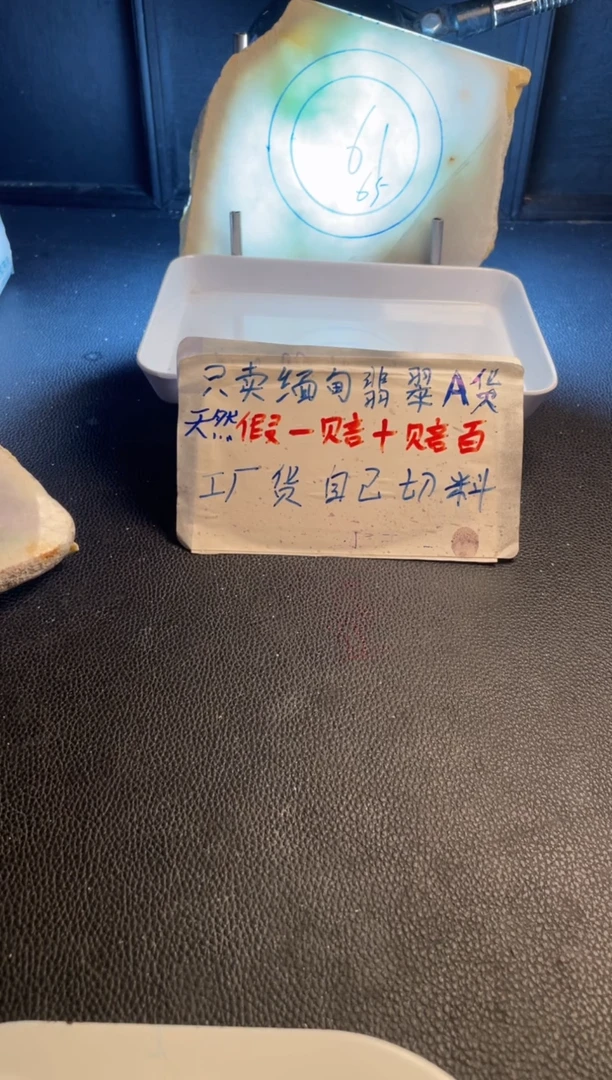 61
65
只卖缅甸翡翠A货
天然假一赔十赔百
工厂货自己切料